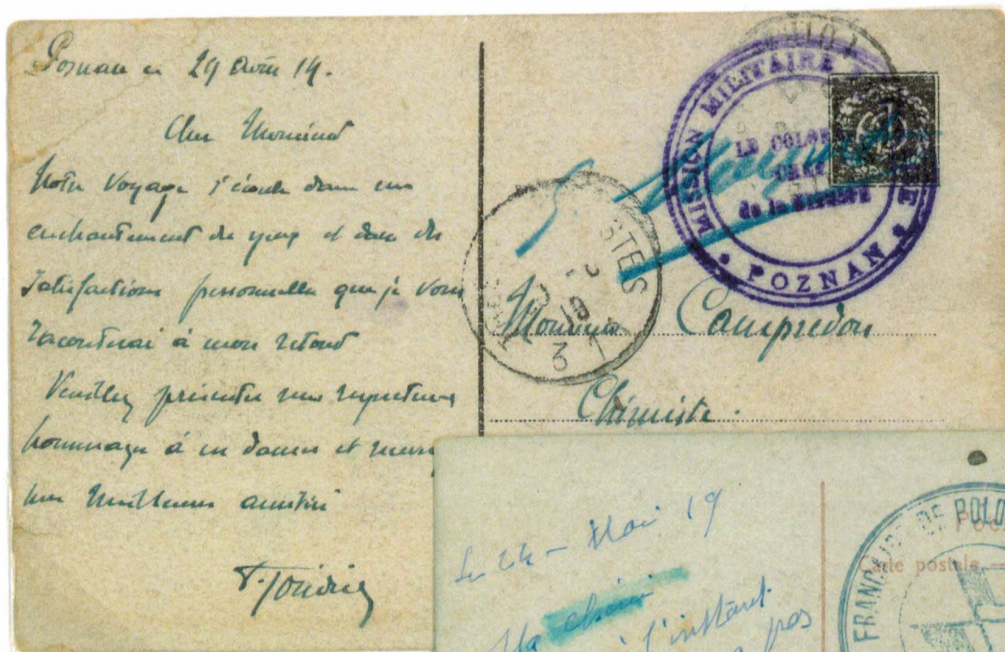 Posnan le 29 Août 19.
Cher Monsieur
Notre Voyage s'écoule dans un
enchantement des yeux et dans des
satisfactions personnelles que je vous
raconterai à mon retour
Veuillez présenter mes respectueux
hommages à ces dames et
mes meilleures amitiés
MISSION MILITAIRE
LE COLONEL
CHEF
de la Mission
POZNAN
POSTES
3
Monsieur Campredon
Chimiste.
Le 24 - Mai 19
Ma chérie
à l'instant
pas
FRANÇAISE DE POLO
Carte postale